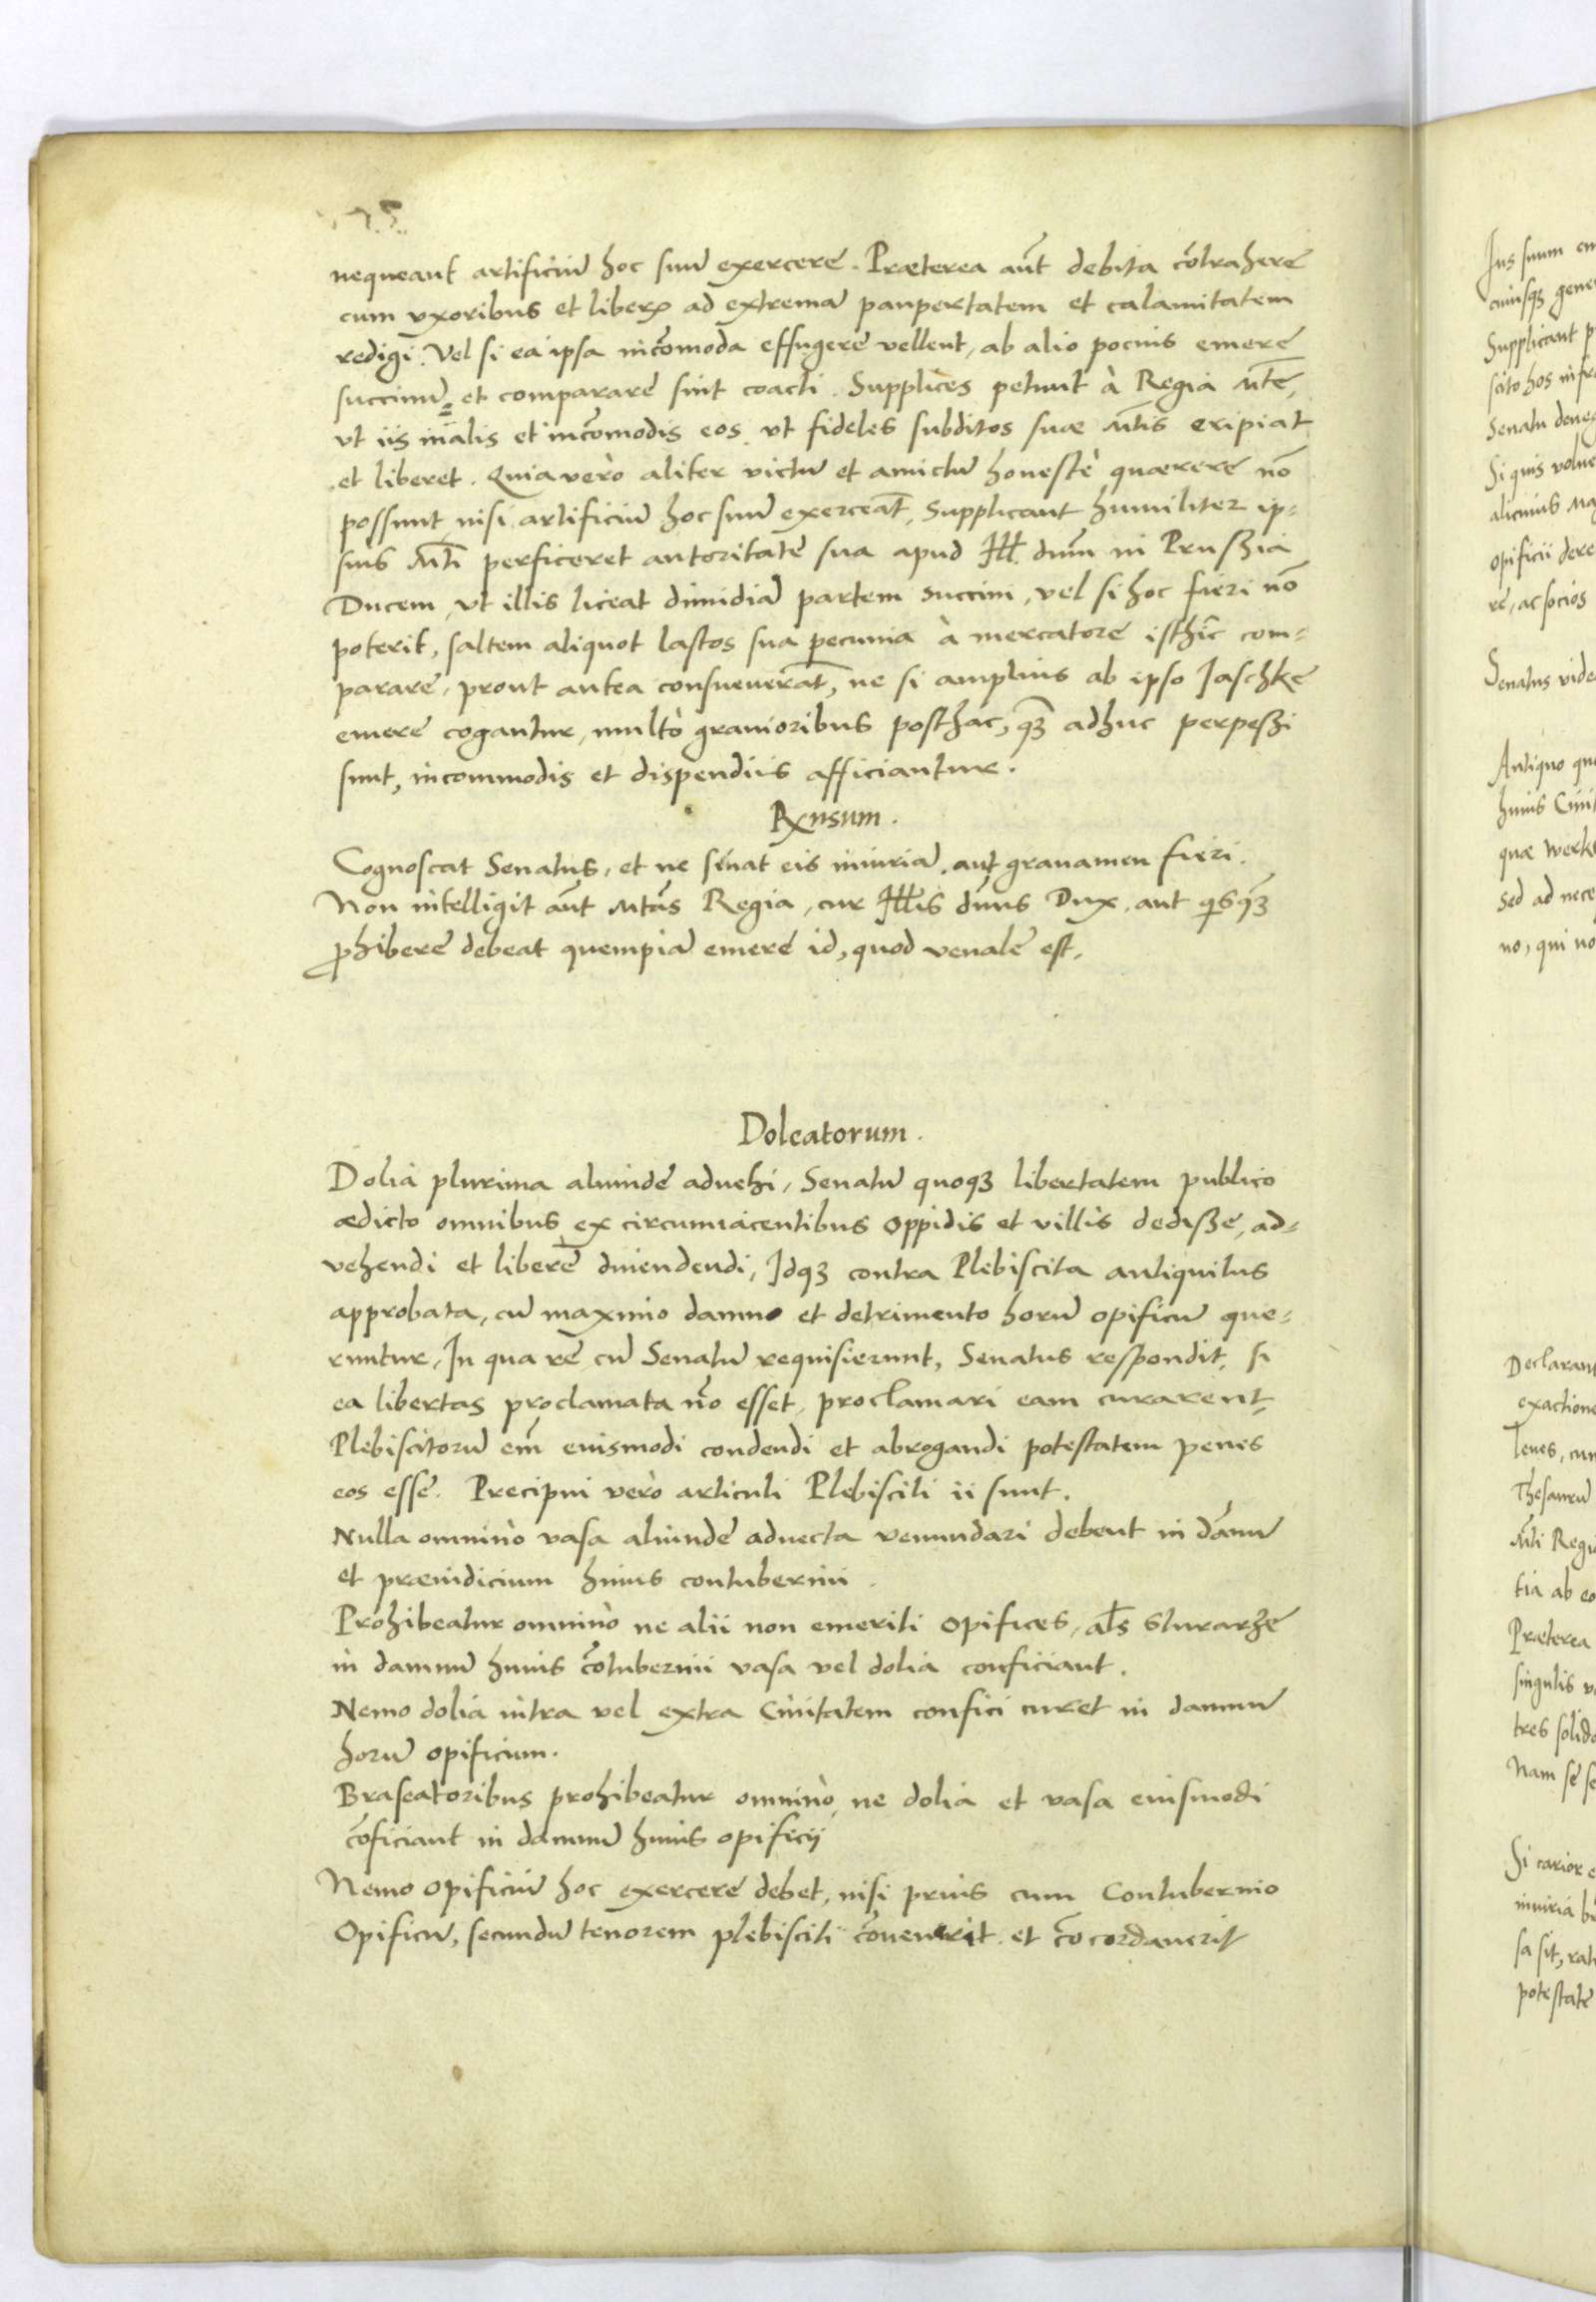 nequeant artificiũ hoc suũ exercere. Præterea aũt debita cõtrahere
cum vxoribus et liberꝭ ad extremã paupertatem et calamitatem
redigi. Vel si ea ipsa incõmoda effugere vellent, ab alio pocius emere
succinũ et comparare sint coacti. Supplices petunt à Regia Mte,
vt iis malis et incõmodis eos, vt fideles subditos suæ Mtis eripiat
et liberet. Quia verò aliter victũ et amictũ honestè quærere nõ
possunt, nisi artificiũ hoc suũ exerceãt, supplicant humiliter ip-
sius Mti perficeret autoritate sua apud Ill. dũm in Prußia
Ducem, vt illis liceat dimidiã partem succini, vel si hoc fieri nõ
poterit, saltem aliquot lastos sua pecunia à mercatore isthic com-
parare, prout antea consueuerãt, ne si amplius ab ipso Jaschke
emere cogantur, multò grauioribus posthac, qꝫ adhuc perpeßi
sunt, incommodis et dispendiis afficiantur.
Rñsum.
Cognoscat Senatus, et ne sinat eis iniuriã aut grauamen fieri.
Non intelligit aũt Mtãs Regia, cur Illis dñus Dux, aut qisqꝫ
ꝓhibere debeat quempiã emere id, quod venale est.
Doleatorum.
Dolia plurima aliunde aduehi, Senatũ quoqꝫ libertatem publico
ædicto omnibus ex circumiacentibus oppidis et villis dediße, ad-
vehendi et liberè diuendendi, Idqꝫ contra Plebiscita antiquitus
approbata, cũ maximo damno et detrimento horũ opificũ que-
runtur, In qua re cũ Senatũ requisierunt, Senatus respondit, si
ea libertas proclamata nõ esset, proclamari eam curarent,
Plebiscitorũ em̃ euismodi condendi et abrogandi potestatem penes
eos esse. Precipui verò articuli Plebisciti ii sunt.
Nulla omninò vasa aliunde aduecta venundari debent in dãnũ
et præiudicium huius contubernii.
Prohibeatur omninò ne alii non emeriti opifices, als Sturarze
in damnũ huius cõtubernii vasa vel dolia conficiant.
Nemo dolia intra vel extra Ciuitatem confici curet in damnũ
horũ opificium.
Braseatoribus prohibeatur omninò, ne dolia et vasa euismodi
cõficiant in damnũ huius opificij
Nemo opificiũ hoc exercere debet, nisi prius cum Contubernio
Opificũ, secundũ tenorem plebisciti cõuenerit et cõcordauerit
Ius suum
cuiusqꝫ
Supplicant
scito hos
Senatu
Si quis
alicuius
opificii
re, ac socios
Senatus
Antiquo
huius
quæ
sed ad
no, qui
Declarant
Praeterea
singulis
tres
Nam se
Si carior
iniuria
sa sit,
potestate